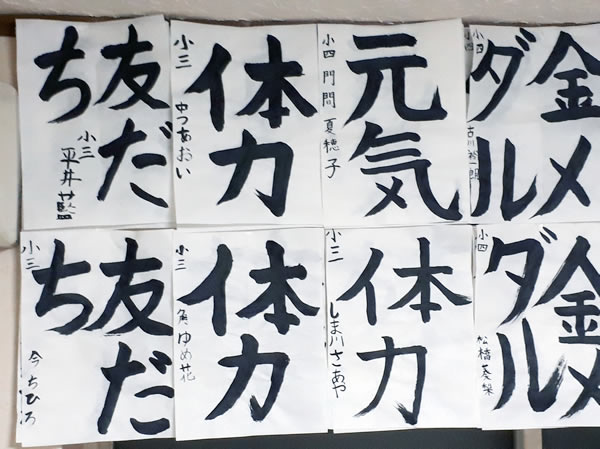 友だち
小三
平井藍
体力
小三
中つあおい
元気
小四
門間夏穂子
金メダル
小四
友だち
小三
今ちひろ
体力
小三
角ゆめ花
体力
小三
しま川さあや
金メダル
小四